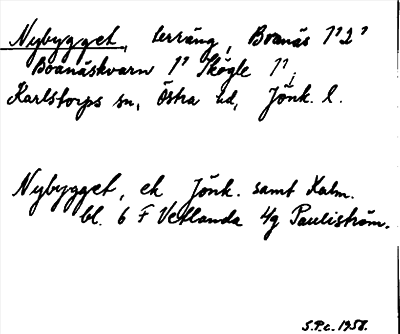 Nybygget, terräng, Boanäs 1⁷2⁷
Boanäskvarn 1⁷ Skögle 1⁷,
Karlstorps sn, Östra hd, Jönk. l.
Nybygget, ek Jönk. samt Kalm.
bl. 6 F Vetlanda 4g Pauliström.
S.P.c. 1958.